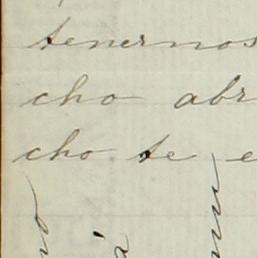 tenernos
cho abr
cho te e